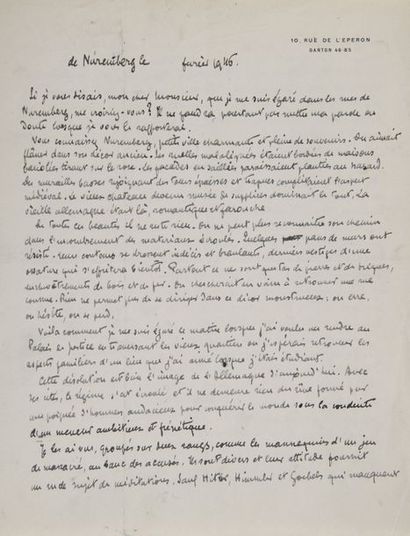 10, RUE DE L'EPERON
DANTON 46-85
de Nuremberg le février 1946.
Si je vous disais, mon cher Monsieur, que je me suis égaré dans les rues de
Nuremberg, me croiriez-vous? Il ne faudra pourtant pas mettre ma parole en
doute lorsque je vous le rapporterai.
Vous connaissez Nuremberg, petite ville charmante et pleine de souvenirs. On aimait
flâner dans son décor ancien. Les ruelles mal alignées étaient bordées de maisons
bariolées tirant sur le rose. Les façades en saillies paraissaient plantées au hasard.
De murailles basses rejoignant des tours épaisses et trapues complétaient l'aspect
médiéval. Le vieux chateau devenu musée de supplices dominait le tout. La
vieille allemagne était là, romantique et farouche
De toute sa beauté il ne reste rien. On ne peut plus reconnaître son chemin
dans l'encombrement des matériaux écroulés. Quelques pans de murs ont
résisté. Leur contour se dressent indécis et branlants, derniers vestiges d'une
ossature qui s'effritera bientôt. Partout ce ne sont que tas de pierres et de briques,
enchevêtrement de bois et de fer. On chercherait en vain à retrouver une rue
connue. Rien ne permet plus de se diriger dans ce décor monstrueux; on erre,
on hésite, on se perd.
Voila comment je me suis égaré ce matin lorsque j'ai voulu me rendre au
Palais de justice en traversant un vieux quartier où j'espérais retrouver les
aspects familiers d'un lieu que j'ai aimé lorsque j'étais étudiant.
Cette désolation est bien l'image de l'Allemagne d'aujourd'hui. Avec
ses villes, le régime s'est écroulé et il ne demeure rien du rêve formé par
une poignée d'hommes audacieux pour conquérir le monde sous la conduite
d'un meneur ambitieux et frénétique.
Je les ai vus, groupés sur deux rangs, comme les mannequins d'un jeu
de massacre, au banc des accusés. Ils sont divers et leur attitude fournit
un rude sujet de méditations. Sauf Hitler, Himmler et Goebels qui manquent